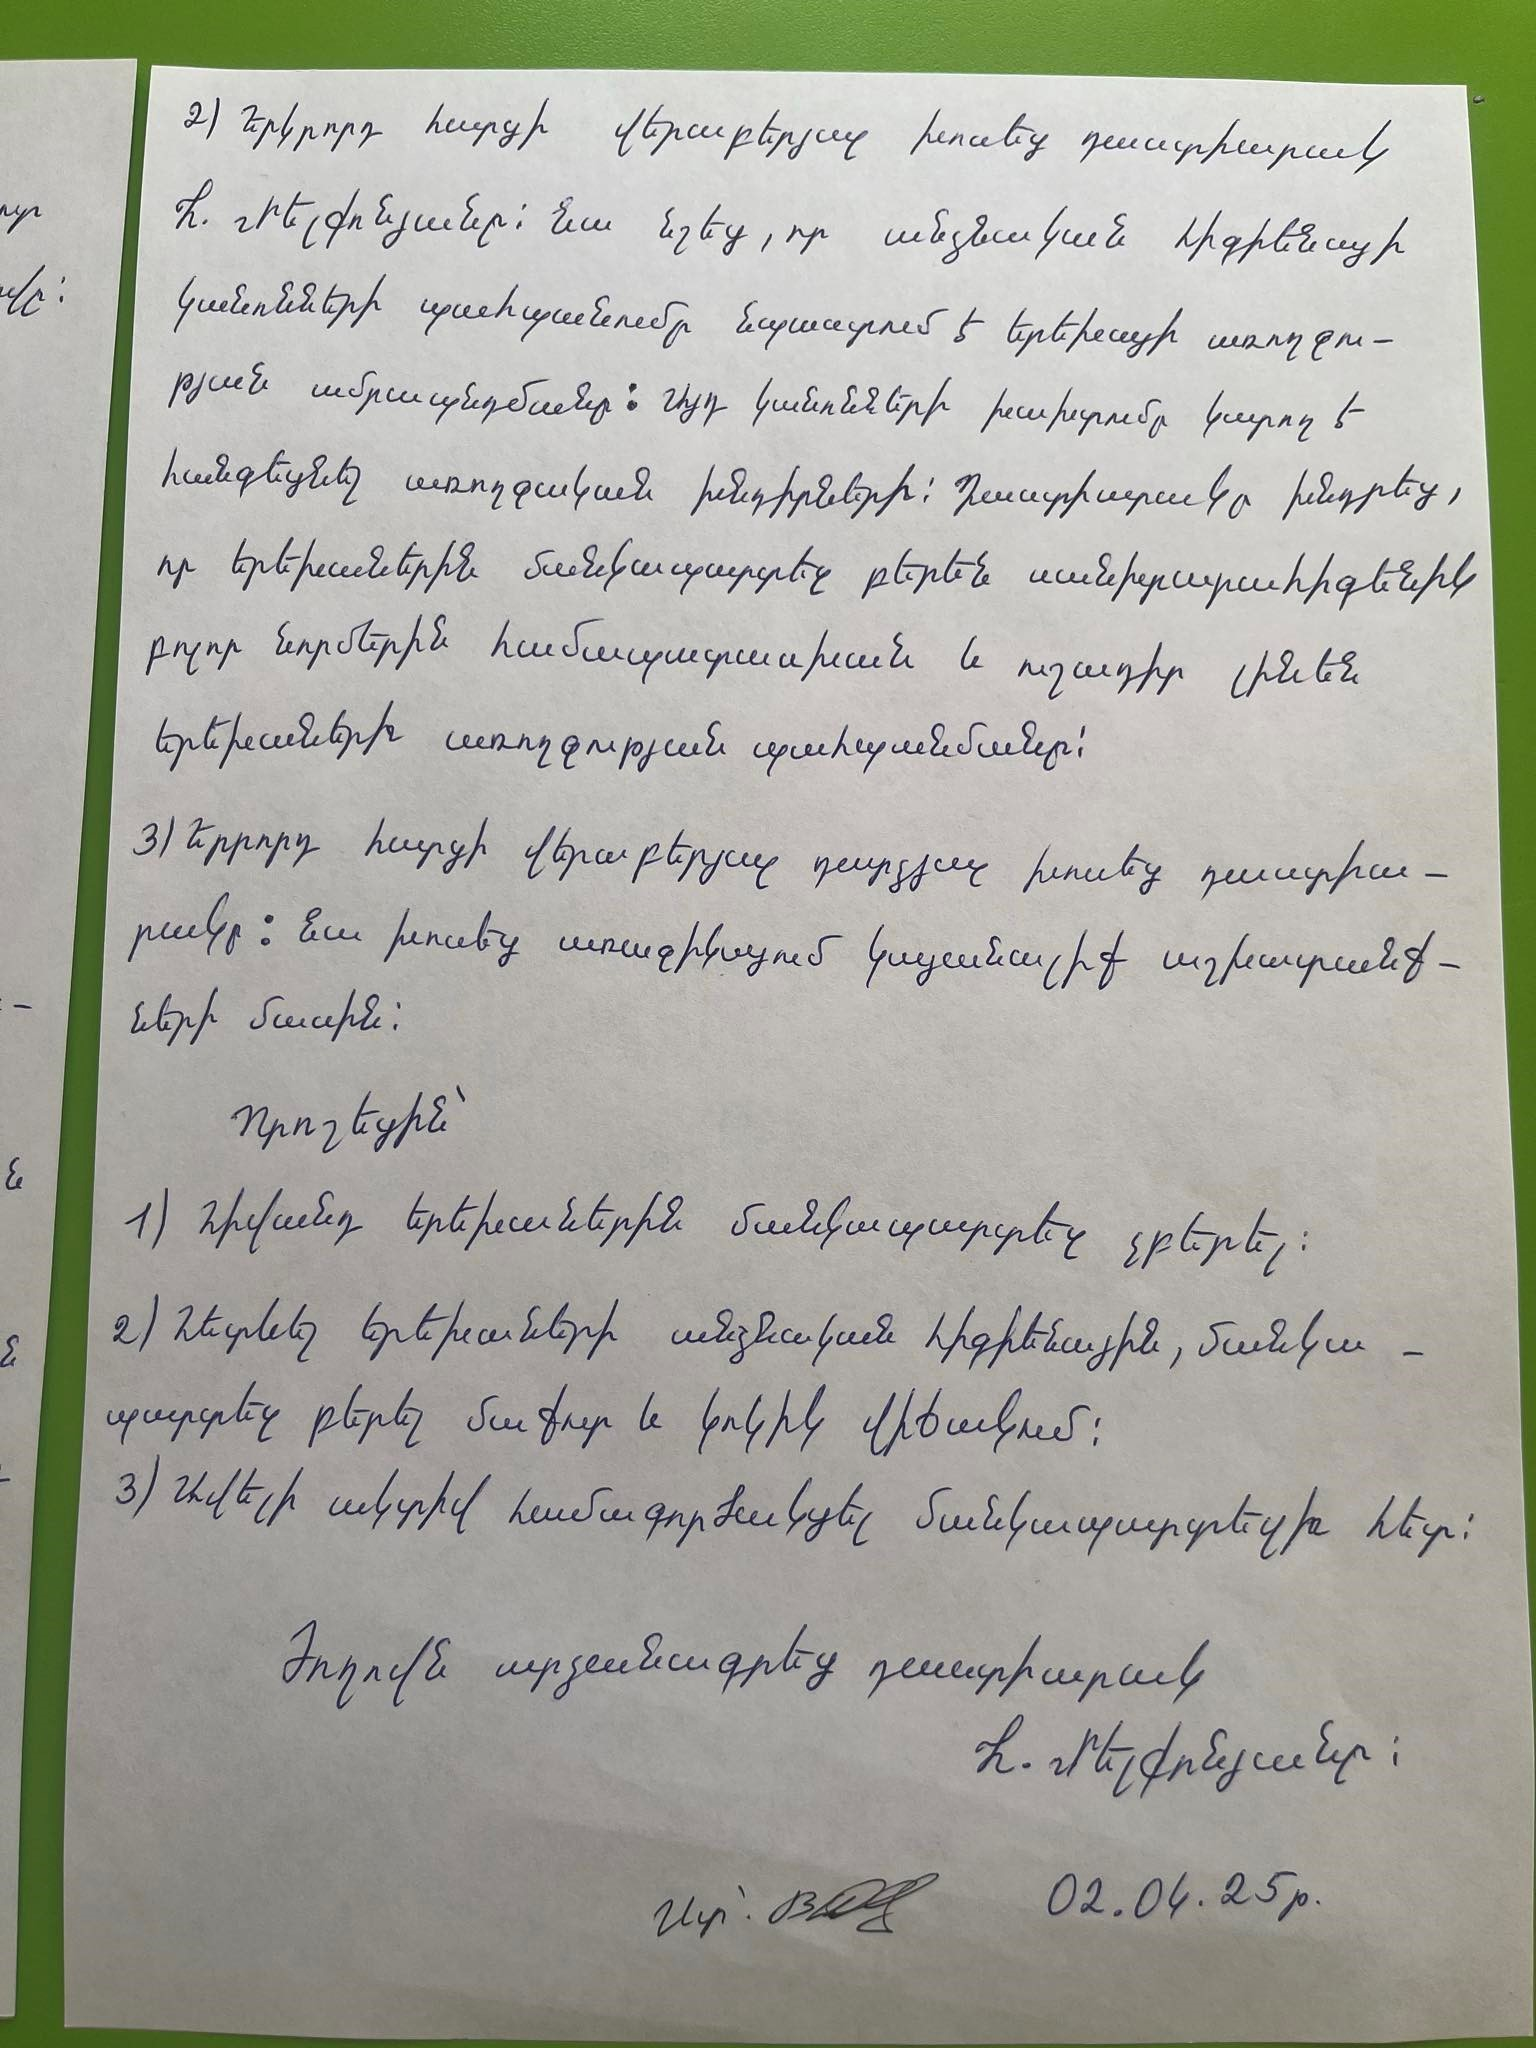 2) Երկրորդ հարցի վերաբերյալ խոսեց դաստիարակ
Հ. Մելքոնյանը: Նա նշեց, որ անձնական հիգիենայի
կանոնների պահպանումը նպաստում է երեխայի առողջու-
թյան ամրապնդմանը: Այդ կանոնների խախտումը կարող է
հանգեցնել առողջական խնդիրների: Դաստիարակը խնդրեց,
որ երեխաներին մանկապարտեզ բերեն սանիտարահիգենիկ
բոլոր նորմերին համապատասխան և ուշադիր լինեն
երեխաների առողջության պահպանմանը:
3) Երրորդ հարցի վերաբերյալ դարձյալ խոսեց դաստիա-
րակը: Նա խոսեց առաջիկայում կայանալիք աշխատանք-
ների մասին:
Որոշեցին՝
1) Հիվանդ երեխաներին մանկապարտեզ չբերել:
2) Հետևել երեխաների անձնական հիգիենային, մանկա-
պարտեզ բերել մաքուր և կոկիկ վիճակում:
3) Ավելի ակտիվ համագործակցել մանկապարտեզի հետ:
Ժողովն արձանագրեց դաստիարակ
Հ. Մելքոնյանը:
02.04.25թ.